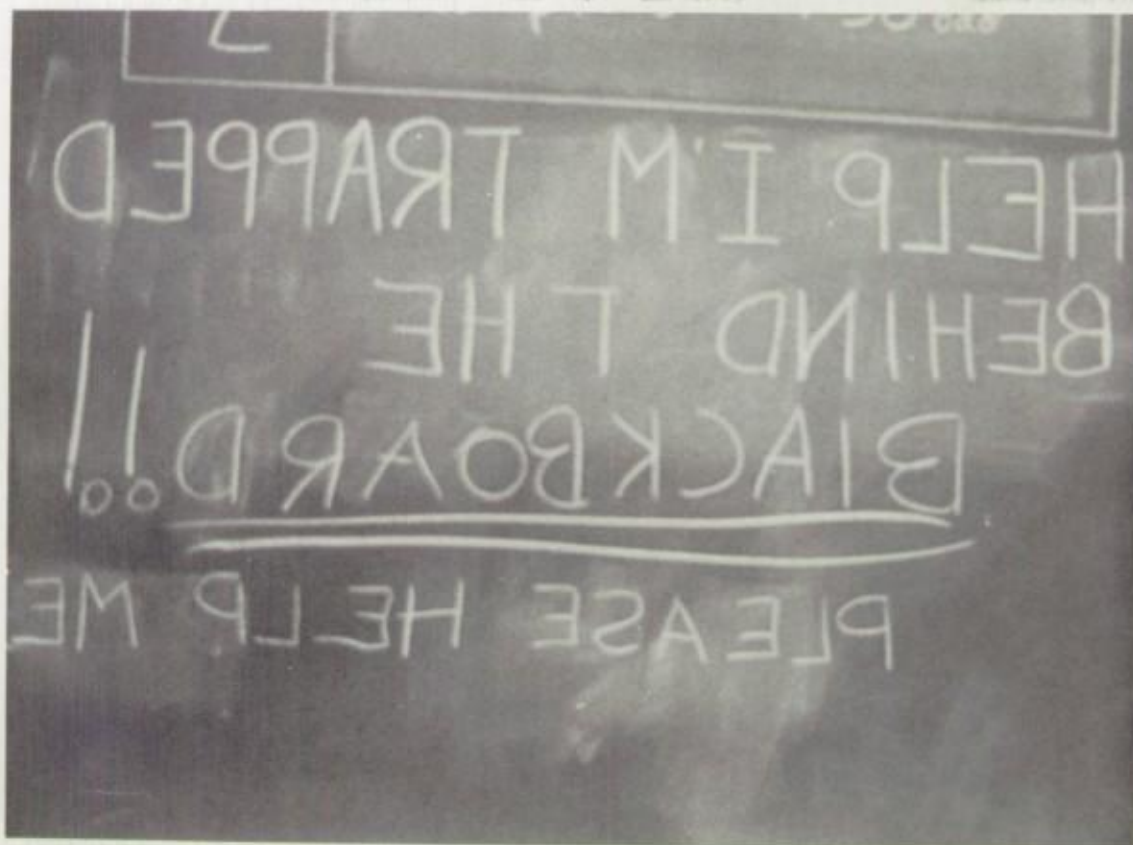 HELP I'M TRAPPED
BEHIND THE
BlACKBOARD!!
PLEASE HELP ME